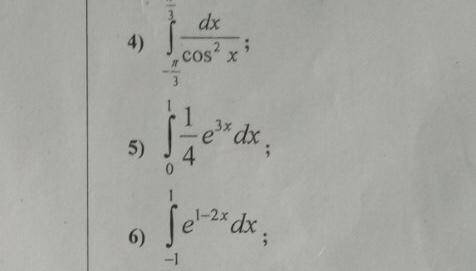 4) ∫_{-π/3}^{π/3} dx / cos² x ;
5) ∫_{0}^{1} 1/4 e^{3x} dx ;
6) ∫_{-1}^{1} e^{1-2x} dx ;